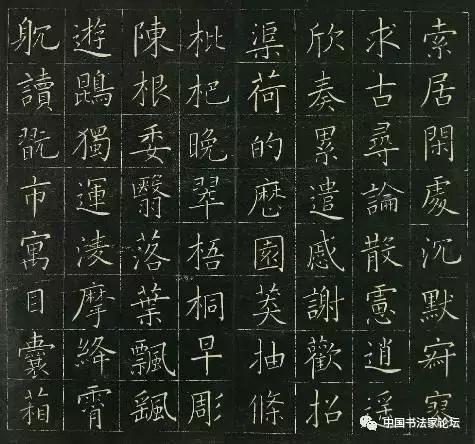 索居閑處沉默寂寥
求古尋論散慮逍遙
欣奏累遣慼謝歡招
渠荷的歷園莽抽條
枇杷晚翠梧桐早彫
陳根委翳落葉飄颻
遊鵾獨運淩摩絳霄
躭讀翫市寓目囊箱
中国书法家论坛